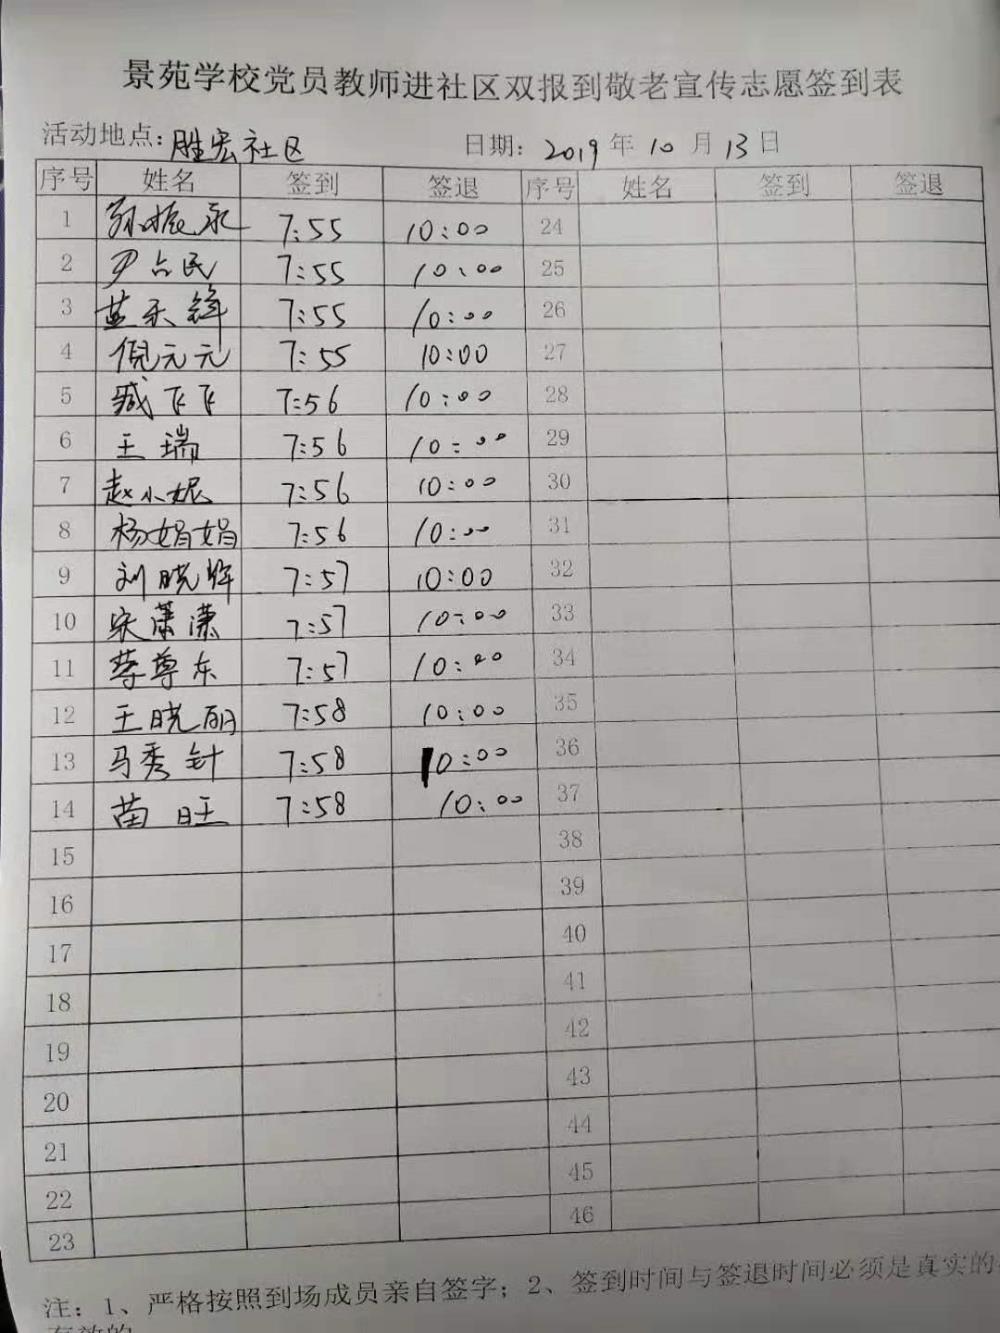 景苑学校党员教师进社区双报到敬老宣传志愿签到表
活动地点:胜宏社区 日期: 2019年10月13日
序号 姓名 签到 签退 序号 姓名 签到 签退
1 孙振永 7:55 10:00 24
2 尹占民 7:55 10:00 25
3 蓝天锋 7:55 10:00 26
4 倪元元 7:55 10:00 27
5 臧飞飞 7:56 10:00 28
6 王瑞 7:56 10:00 29
7 赵小妮 7:56 10:00 30
8 杨娟娟 7:56 10:00 31
9 刘晓辉 7:57 10:00 32
10 宋潇潇 7:57 10:00 33
11 尊东 7:57 10:00 34
12 王晓丽 7:58 10:00 35
13 马秀针 7:58 10:00 36
14 苗旺 7:58 10:00 37
15 38
16 39
17 40
18 41
19 42
20 43
21 44
22 45
23 46
注:1、严格按照到场成员亲自签字;2、签到时间与签退时间必须是真实的
有效的